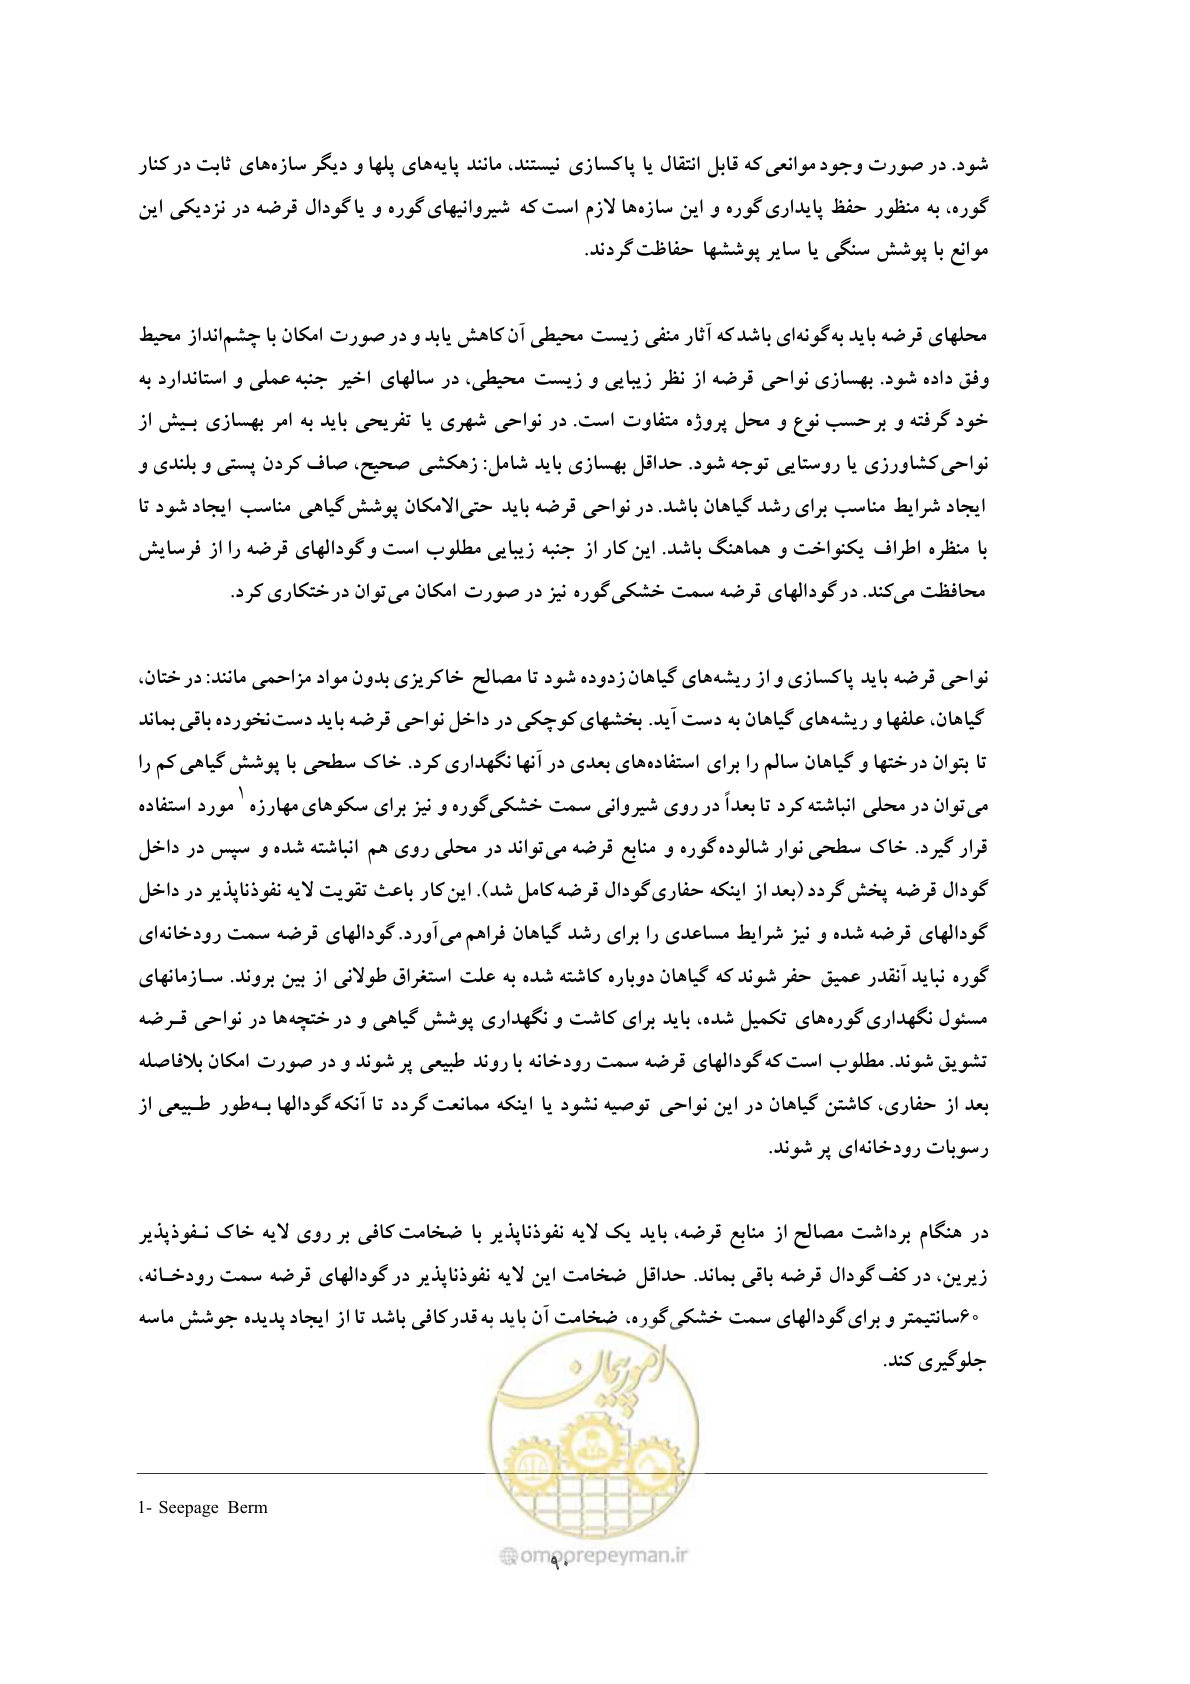 شود. در صورت وجود موانعی که قابل انتقال یا پاکسازی نیستند، مانند پایه‌های پلها و دیگر سازه‌های ثابت در کنار
گوره، به منظور حفظ پایداری گوره و این سازه‌ها لازم است که شیروانیهای گوره و یا گودال قرضه در نزدیکی این
موانع با پوشش سنگی یا سایر پوششها حفاظت گردند.
محلهای قرضه باید به‌گونه‌ای باشد که آثار منفی زیست محیطی آن کاهش یابد و در صورت امکان با چشم‌انداز محیط
وفق داده شود. بهسازی نواحی قرضه از نظر زیبایی و زیست محیطی، در سالهای اخیر جنبه عملی و استاندارد به
خود گرفته و بر حسب نوع و محل پروژه متفاوت است. در نواحی شهری یا تفریحی باید به امر بهسازی بیش از
نواحی کشاورزی یا روستایی توجه شود. حداقل بهسازی باید شامل: زهکشی صحیح، صاف کردن پستی و بلندی و
ایجاد شرایط مناسب برای رشد گیاهان باشد. در نواحی قرضه باید حتی‌الامکان پوشش گیاهی مناسب ایجاد شود تا
با منظره اطراف یکنواخت و هماهنگ باشد. این کار از جنبه زیبایی مطلوب است و گودالهای قرضه را از فرسایش
محافظت می‌کند. در گودالهای قرضه سمت خشکی گوره نیز در صورت امکان می‌توان درختکاری کرد.
نواحی قرضه باید پاکسازی و از ریشه‌های گیاهان زدوده شود تا مصالح خاکریزی بدون مواد مزاحمی مانند: درختان،
گیاهان، علفها و ریشه‌های گیاهان به دست آید. بخشهای کوچکی در داخل نواحی قرضه باید دست‌نخورده باقی بماند
تا بتوان درختها و گیاهان سالم را برای استفاده‌های بعدی در آنها نگهداری کرد. خاک سطحی با پوشش گیاهی کم را
می‌توان در محلی انباشته کرد تا بعداً در روی شیروانی سمت خشکی گوره و نیز برای سکوهای مهارزه ۱ مورد استفاده
قرار گیرد. خاک سطحی نوار شالوده گوره و منابع قرضه می‌تواند در محلی روی هم انباشته شده و سپس در داخل
گودال قرضه پخش گردد (بعد از اینکه حفاری گودال قرضه کامل شد). این کار باعث تقویت لایه نفوذناپذیر در داخل
گودالهای قرضه شده و نیز شرایط مساعدی را برای رشد گیاهان فراهم می‌آورد. گودالهای قرضه سمت رودخانه‌ای
گوره نباید آنقدر عمیق حفر شوند که گیاهان دوباره کاشته شده به علت استغراق طولانی از بین بروند. سـازمانهای
مسئول نگهداری گوره‌های تکمیل شده، باید برای کاشت و نگهداری پوشش گیاهی و درختچه‌ها در نواحی قـرضه
تشویق شوند. مطلوب است که گودالهای قرضه سمت رودخانه با روند طبیعی پر شوند و در صورت امکان بلافاصله
بعد از حفاری، کاشتن گیاهان در این نواحی توصیه نشود یا اینکه ممانعت گردد تا آنکه گودالها بـه‌طور طـبیعی از
رسوبات رودخانه‌ای پر شوند.
در هنگام برداشت مصالح از منابع قرضه، باید یک لایه نفوذناپذیر با ضخامت کافی بر روی لایه خاک نـفوذپذیر
زیرین، در کف گودال قرضه باقی بماند. حداقل ضخامت این لایه نفوذناپذیر در گودالهای قرضه سمت رودخـانه،
۶۰سانتیمتر و برای گودالهای سمت خشکی گوره، ضخامت آن باید به قدر کافی باشد تا از ایجاد پدیده جوشش ماسه
جلوگیری کند.
امور پیمان
1- Seepage Berm
@omoorepeyman.ir
۹۰